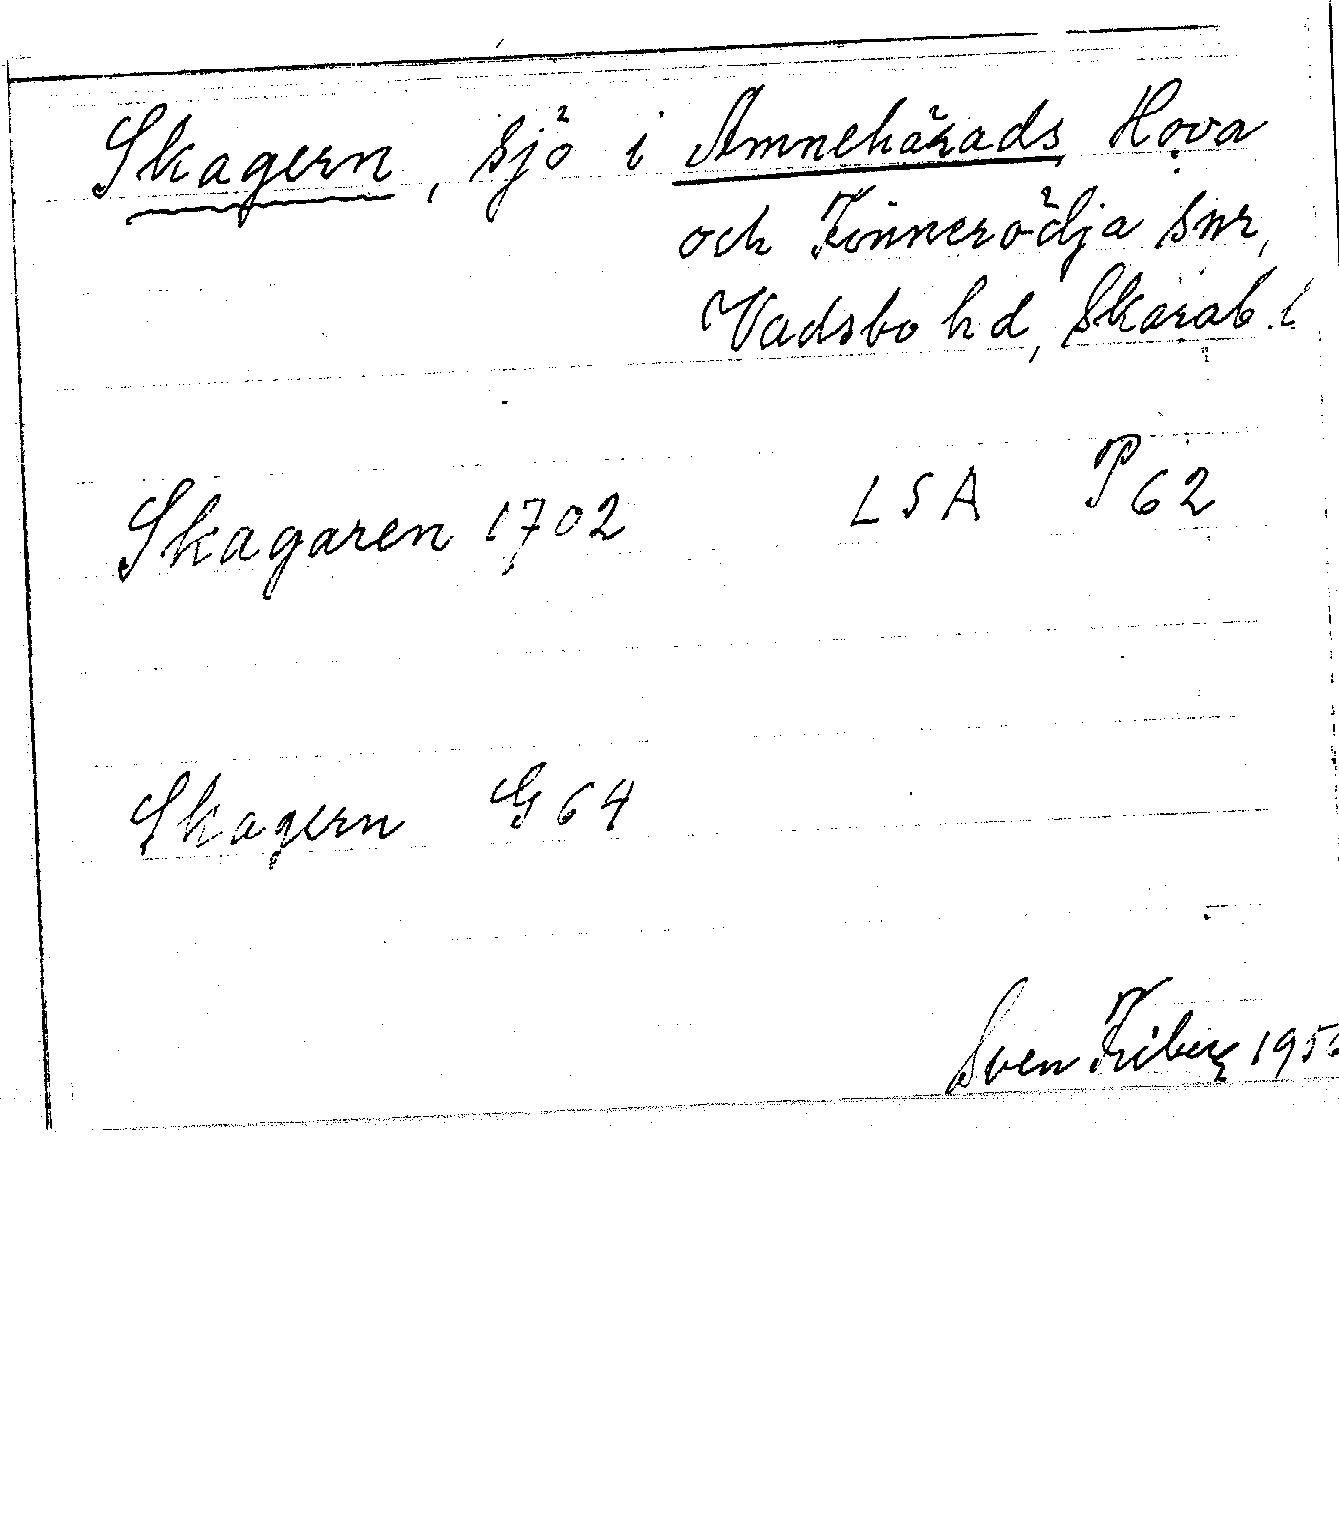 Skagern, sjö i Amnehärads, Hova
och Finnerödja snr,
Vadsbo hd, Skarab. l
Skagaren 1702 LSA P 62
Skagern G 64
Sven Friberg